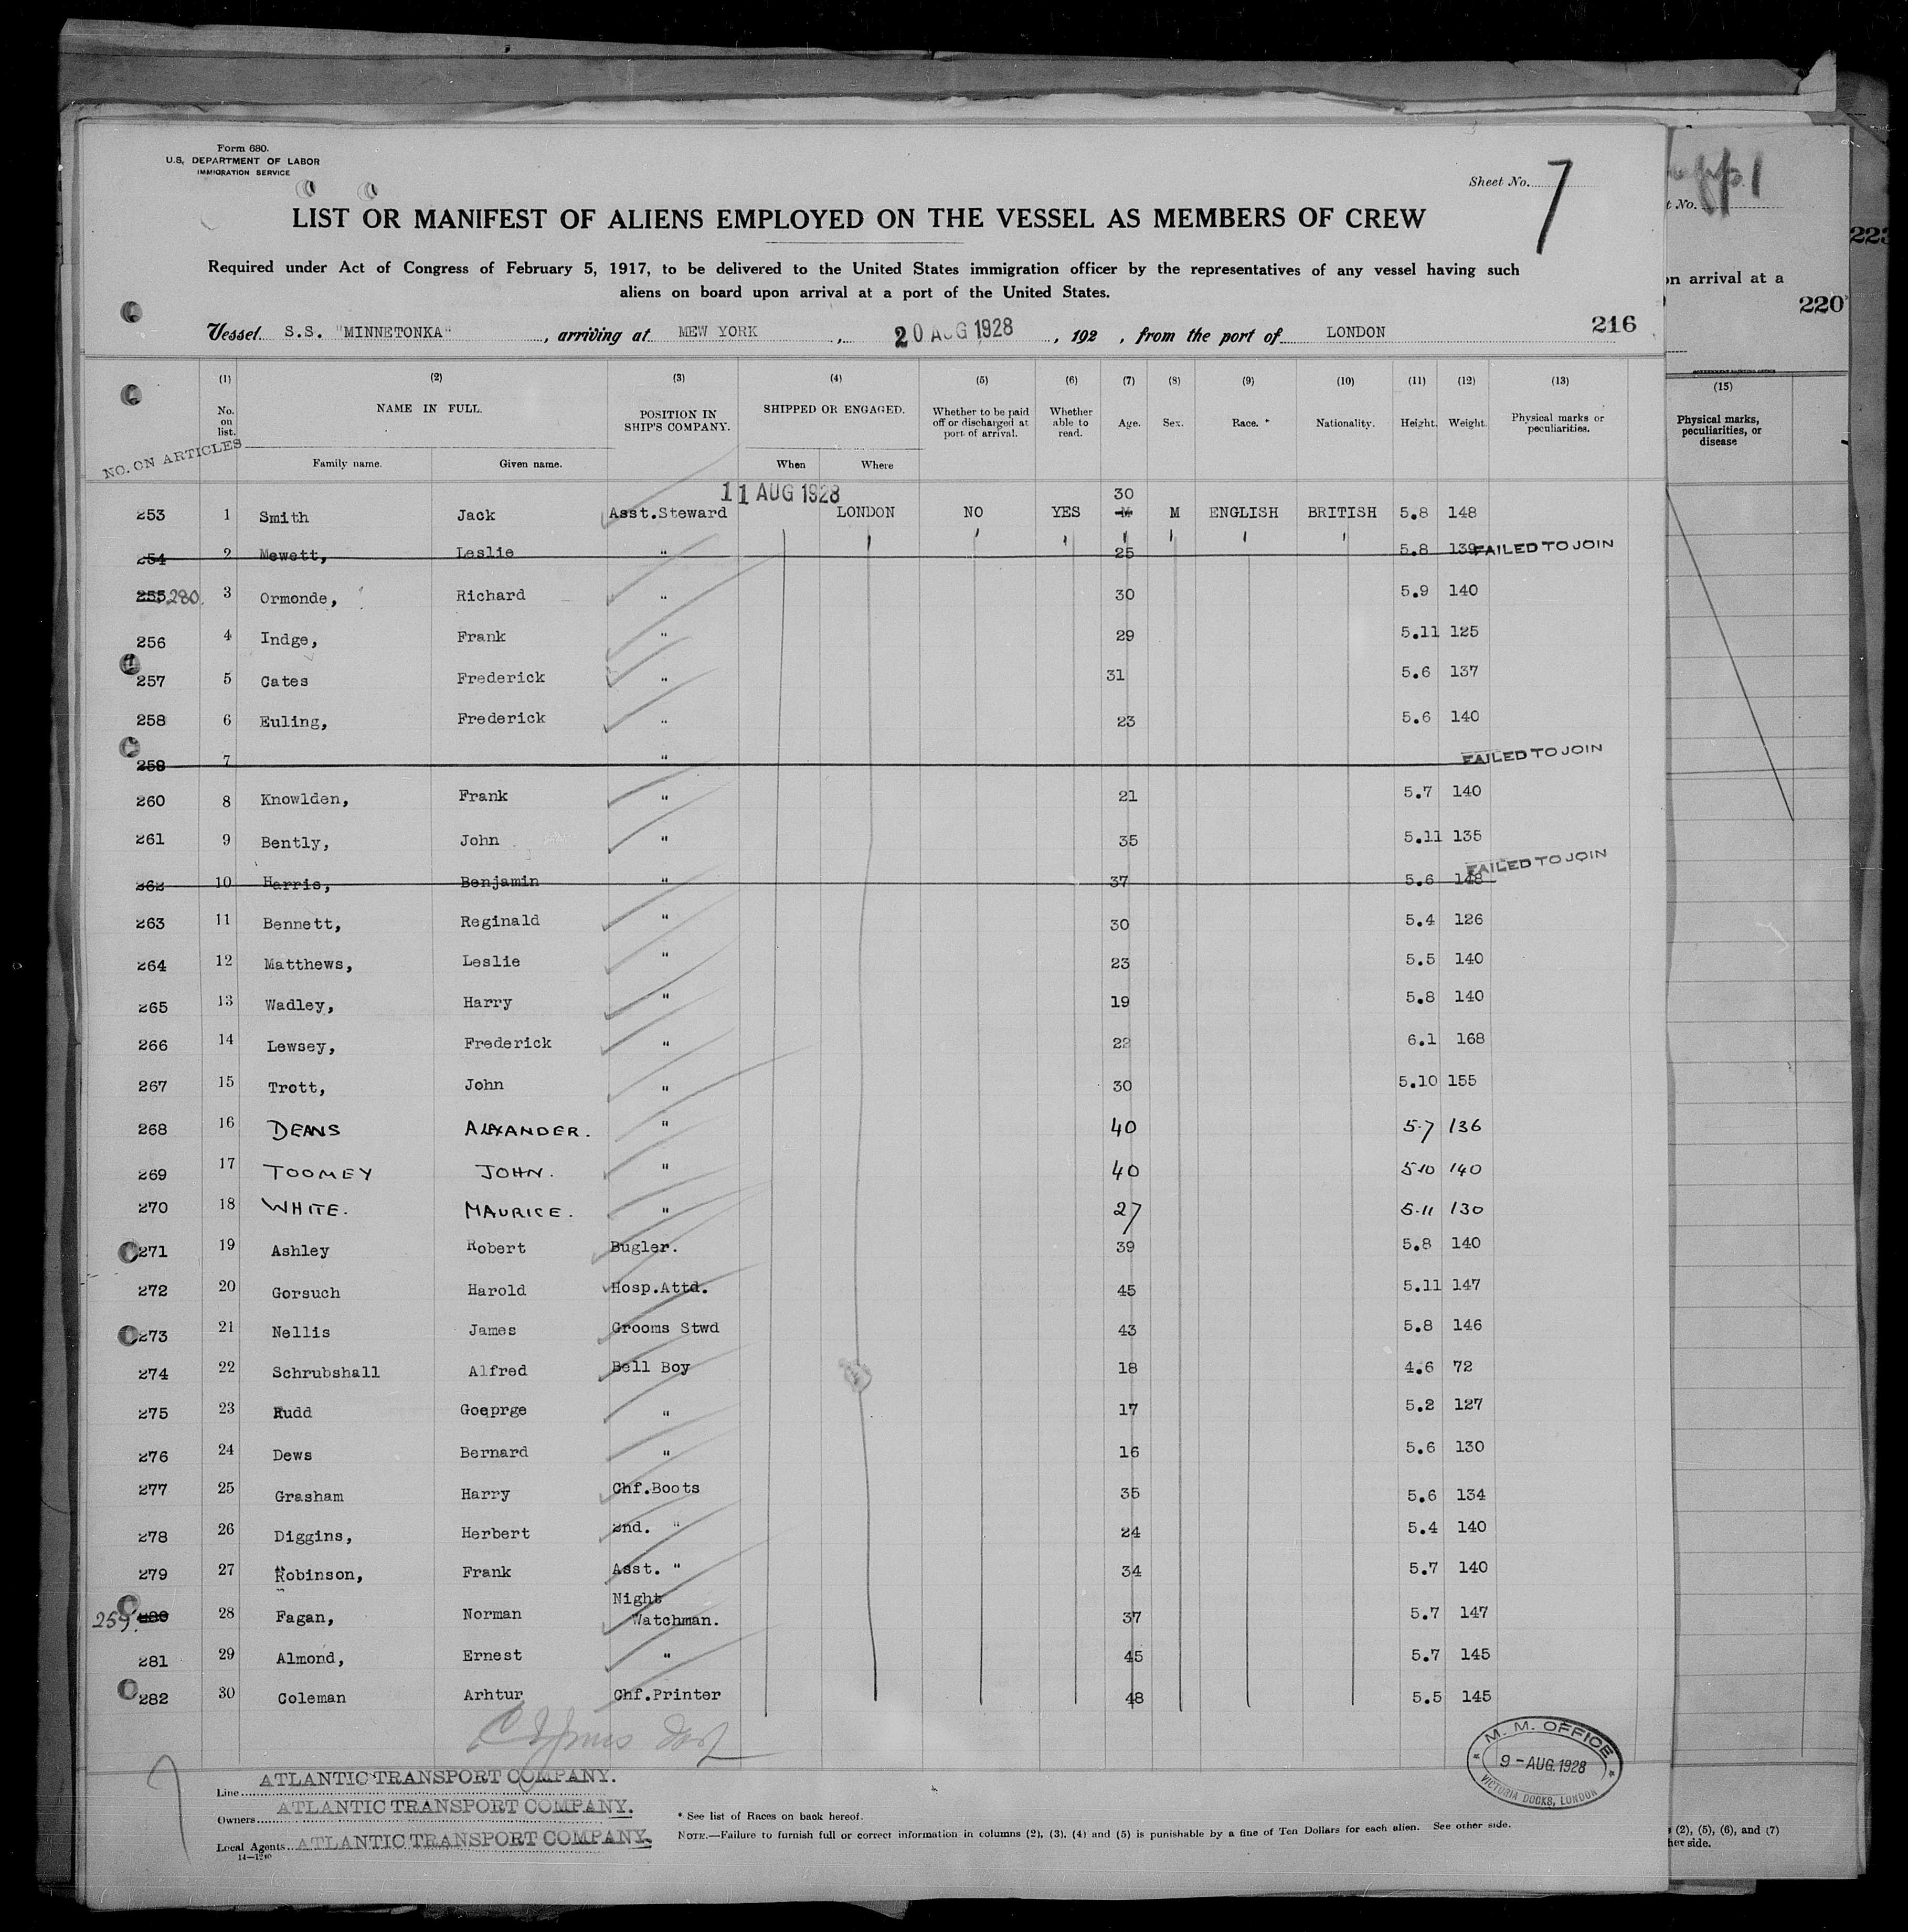 Form 680.
U.S. DEPARTMENT OF LABOR
IMMIGRATION SERVICE
Sheet No. 7
LIST OR MANIFEST OF ALIENS EMPLOYED ON THE VESSEL AS MEMBERS OF CREW
Required under Act of Congress of February 5, 1917, to be delivered to the United States immigration officer by the representatives of any vessel having such
aliens on board upon arrival at a port of the United States.
Vessel S.S. "MINNETONKA", arriving at MEW YORK, 20 AUG 1928, 192 , from the port of LONDON 216
(1) (2) (3) (4) (5) (6) (7) (8) (9) (10) (11) (12) (13)
No. on list. NAME IN FULL. POSITION IN SHIP'S COMPANY. SHIPPED OR ENGAGED. Whether to be paid off or discharged at port of arrival. Whether able to read. Age. Sex. Race. * Nationality. Height. Weight. Physical marks or peculiarities.
NO. ON ARTICLES Family name. Given name. When Where
11 AUG 1928 30
253 1 Smith Jack Asst.Steward LONDON NO YES M M ENGLISH BRITISH 5.8 148
254 2 Mewett, Leslie " 25 5.8 139 FAILED TO JOIN
255 280. 3 Ormonde, Richard " 30 5.9 140
256 4 Indge, Frank " 29 5.11 125
257 5 Cates Frederick " 31 5.6 137
258 6 Euling, Frederick " 23 5.6 140
259 7 " FAILED TO JOIN
260 8 Knowlden, Frank " 21 5.7 140
261 9 Bently, John " 35 5.11 135
262 10 Harris, Benjamin " 37 5.6 148 FAILED TO JOIN
263 11 Bennett, Reginald " 30 5.4 126
264 12 Matthews, Leslie " 23 5.5 140
265 13 Wadley, Harry " 19 5.8 140
266 14 Lewsey, Frederick " 22 6.1 168
267 15 Trott, John " 30 5.10 155
268 16 DEANS ALXANDER. " 40 5.7 136
269 17 TOOMEY JOHN. " 40 5.10 140
270 18 WHITE. MAURICE. " 27 5.11 130
271 19 Ashley Robert Bugler. 39 5.8 140
272 20 Gorsuch Harold Hosp.Attd. 45 5.11 147
273 21 Nellis James Grooms Stwd 43 5.8 146
274 22 Schrubshall Alfred Bell Boy 18 4.6 72
275 23 Rudd Goeprge " 17 5.2 127
276 24 Dews Bernard " 16 5.6 130
277 25 Grasham Harry Chf.Boots 35 5.6 134
278 26 Diggins, Herbert 2nd. " 24 5.4 140
279 27 Robinson, Frank Asst. " 34 5.7 140
259. 280 28 Fagan, Norman Night Watchman. 37 5.7 147
281 29 Almond, Ernest " 45 5.7 145
282 30 Coleman Arhtur Chf.Printer 48 5.5 145
M. M. OFFICE
9 - AUG. 1928
VICTORIA DOCKS, LONDON
Line ATLANTIC TRANSPORT COMPANY.
Owners ATLANTIC TRANSPORT COMPANY.
Local Agents ATLANTIC TRANSPORT COMPANY.
14—1240
* See list of Races on back hereof.
NOTE.—Failure to furnish full or correct information in columns (2), (3), (4) and (5) is punishable by a fine of Ten Dollars for each alien. See other side.
t No. 1
223
on arrival at a
220
GOVERNMENT PRINTING OFFICE
(15)
Physical marks, peculiarities, or disease
(2), (5), (6), and (7)
her side.